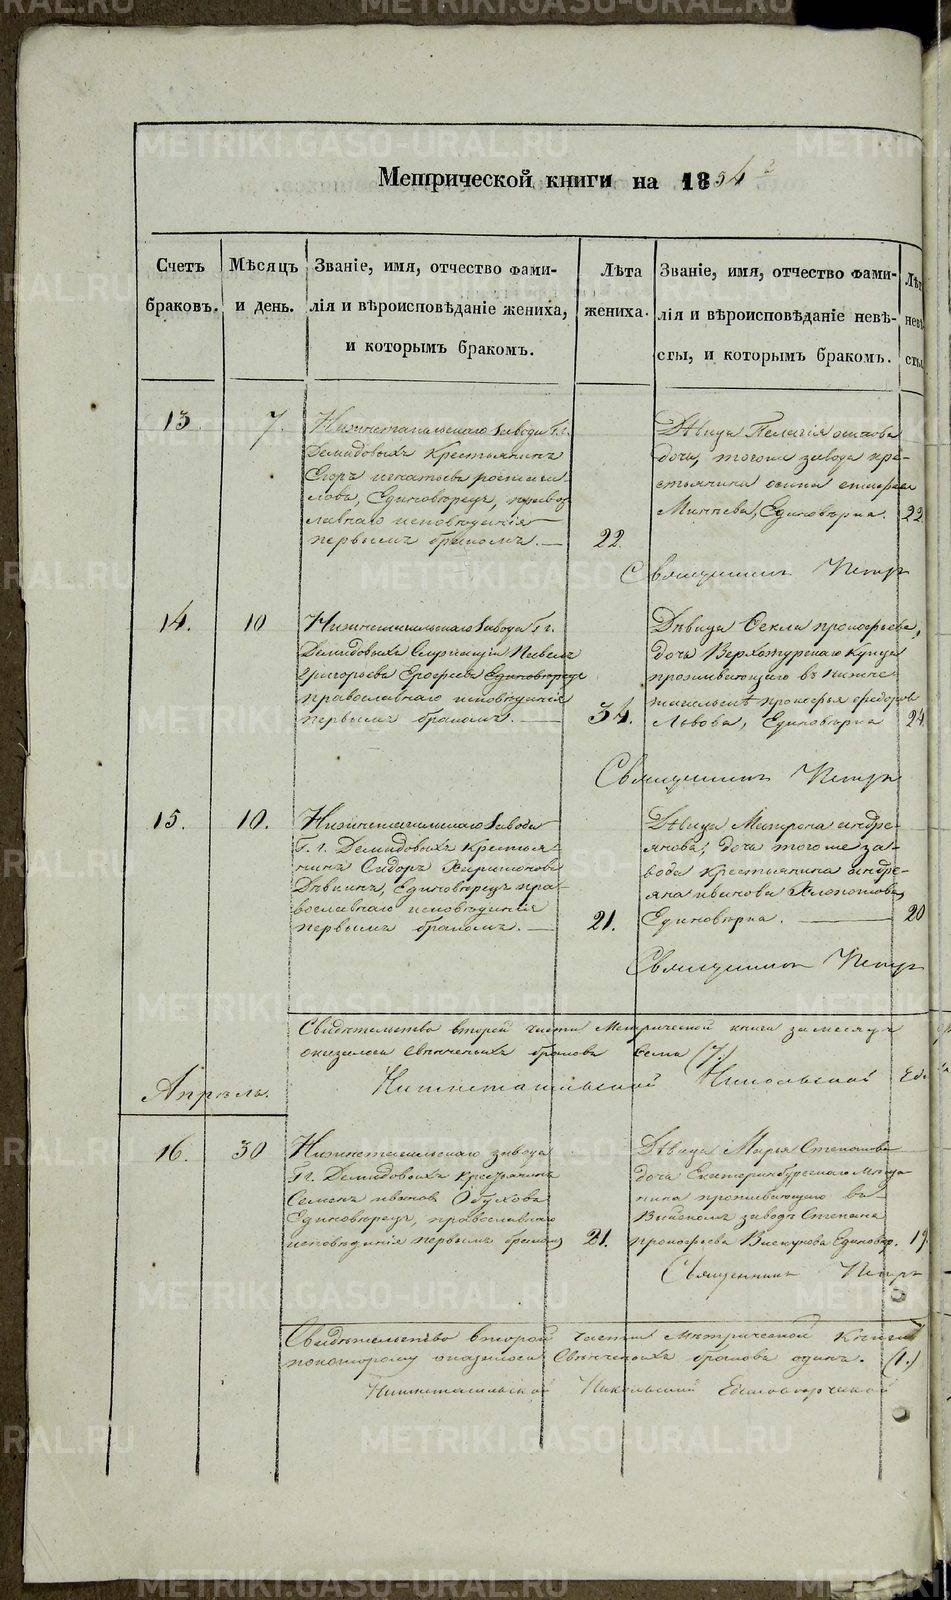 Метрической книги на 1854 г.
Счетъ браковъ.
Мѣсяцъ и день.
Званіе, имя, отчество фами-
лія и вѣроисповѣданіе жениха,
и которымъ бракомъ.
Лѣта жениха.
Званіе, имя, отчество фами-
лія и вѣроисповѣданіе невѣ-
сты, и которымъ бракомъ.
Лѣт невѣ сты
13. 7.
Нижнетагильскаго завода Г.г.
Демидовыхъ Крестьянинъ
Егоръ игнатьевъ
Единовѣрецъ, правос
лавнаго исповѣданія
первымъ бракомъ. — 22.
Дѣвица Пелагія осипова
дочь, тогоже завода кре-
стьянина осипа
Минѣева, Единовѣрка. 22
Священникъ Петръ
14. 10
Нижнетагильскаго завода Г.г.
Демидовыхъ Служащій Павелъ
григорьевъ Ерофеевъ Единовѣрецъ
православнаго исповѣданія
первымъ бракомъ. — 34.
Дѣвица Ѳекла прокофьева,
дочь Верхотурскаго Купца
проживающаго въ нижне
тагильскѣ прокофья федоров
Львова, Единовѣрка 24
Священникъ Петръ
15. 10.
Нижнетагильскаго завода
Г. г. Демидовыхъ Крестья
нинъ Сидоръ Харитоновъ
Единовѣрецъ пра-
вославнаго исповѣданія
первымъ бракомъ. — 21.
Дѣвица Матрона андре-
янова, дочь тогоже за-
вода крестьянина андре-
яна иванова
Единовѣрка. — 20
Священникъ Петръ
Свидѣтельство второй части Метрической книги за месяцъ
оказалось свѣнченыхъ браковъ семь (7.)
Нижнетагильской Никольской Ед.
Апрѣль.
16. 30
Нижнетагильскаго завода
Г г. Демидовыхъ Крестьянинъ
Семенъ ивановъ Обуховъ
Единовѣрецъ, православнаго
исповѣданія первымъ бракомъ 21.
Дѣвица Марья Степанова
дочь Екатеринбургскаго Мѣща
нина проживающаго въ
Выйскомъ заводѣ Степана
прокофьева Вискунова Единовѣр. 19.
Священникъ Петръ
Свидѣтельство второй части Метрической Книги
покоторому оказалось Свѣнченыхъ браковъ одинъ. (1.)
Нижнетагильской Никольской Единоверческой
METRIKI.GASO-URAL.RU